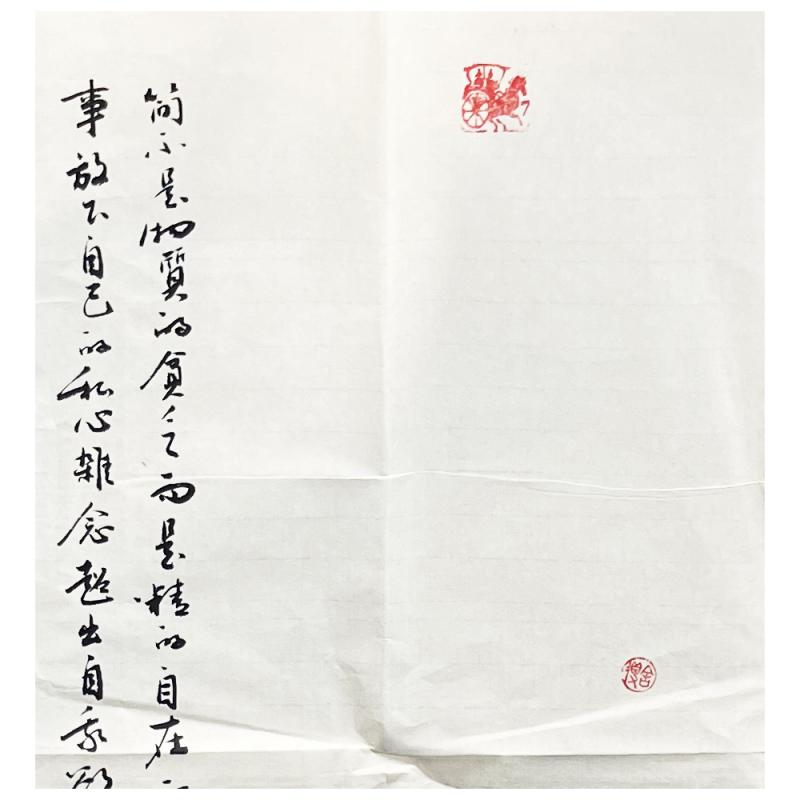 舍得
简不是物質的貧乏而是精的自在
事放下自己的私心雜念超出自我